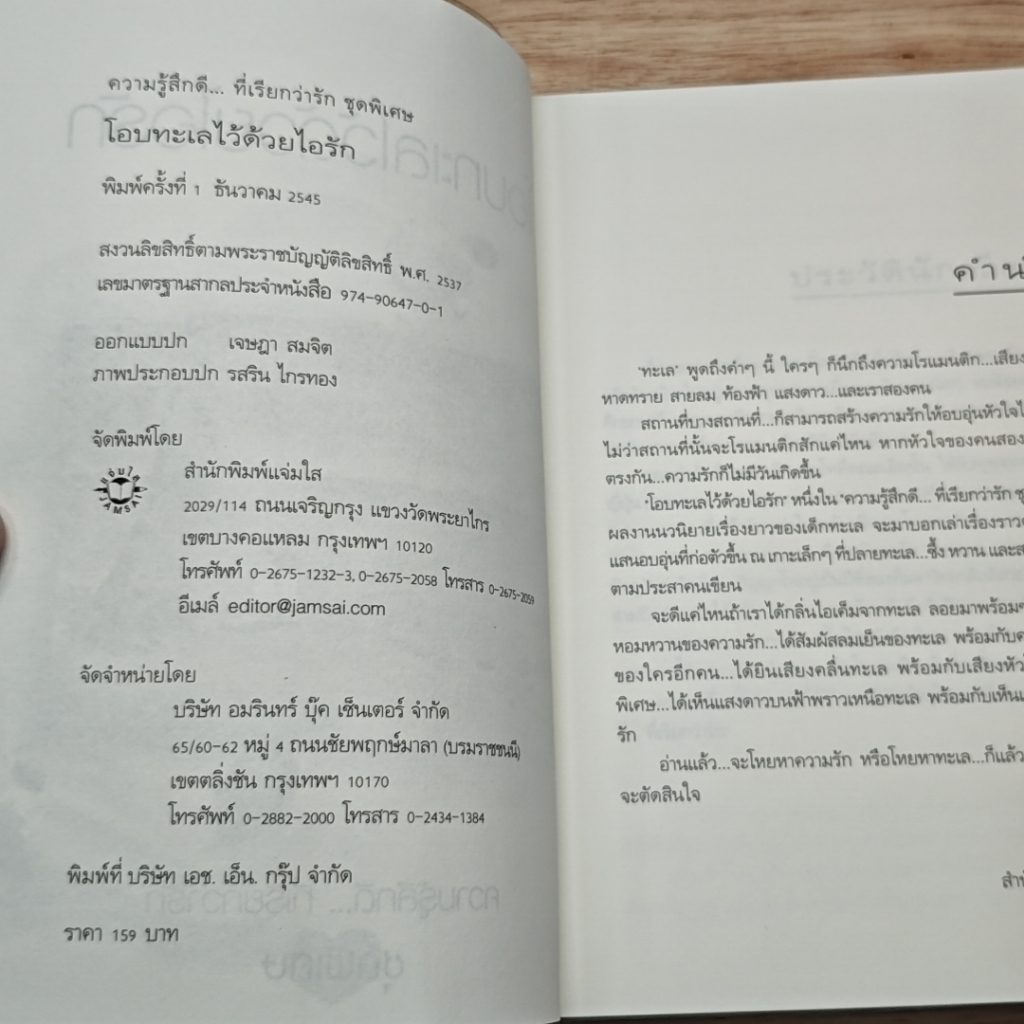 ความรู้สึกดี... ที่เรียกว่ารัก ชุดพิเศษ
โอบทะเลไว้ด้วยไอรัก
พิมพ์ครั้งที่ 1 ธันวาคม 2545
สงวนลิขสิทธิ์ตามพระราชบัญญัติลิขสิทธิ์ พ.ศ. 2537
เลขมาตรฐานสากลประจำหนังสือ 974-90647-0-1
ออกแบบปก เจษฎา สมจิต
ภาพประกอบปก รสริน ไกรทอง
จัดพิมพ์โดย
สำนักพิมพ์แจ่มใส
2029/114 ถนนเจริญกรุง แขวงวัดพระยาไกร
เขตบางคอแหลม กรุงเทพฯ 10120
โทรศัพท์ 0-2675-1232-3, 0-2675-2058 โทรสาร 0-2675-2059
อีเมล์ editor@jamsai.com
จัดจำหน่ายโดย
บริษัท อมรินทร์ บุ๊ค เซ็นเตอร์ จำกัด
65/60-62 หมู่ 4 ถนนชัยพฤกษ์มาลา (บรมราชชนนี)
เขตตลิ่งชัน กรุงเทพฯ 10170
โทรศัพท์ 0-2882-2000 โทรสาร 0-2434-1384
พิมพ์ที่ บริษัท เอช. เอ็น. กรุ๊ป จำกัด
ราคา 159 บาท
คำน
"ทะเล" พูดถึงคำๆ นี้ ใครๆ ก็นึกถึงความโรแมนติก...เสียง
หาดทราย สายลม ท้องฟ้า แสงดาว...และเราสองคน
สถานที่บางสถานที่...ก็สามารถสร้างความรักให้อบอุ่นหัวใจ
ไม่ว่าสถานที่นั้นจะโรแมนติกสักแค่ไหน หากหัวใจของคนสอง
ตรงกัน...ความรักก็ไม่มีวันเกิดขึ้น
"โอบทะเลไว้ด้วยไอรัก" หนึ่งใน "ความรู้สึกดี... ที่เรียกว่ารัก ชุ
ผลงานนวนิยายเรื่องยาวของเด็กทะเล จะมาบอกเล่าเรื่องราว
แสนอบอุ่นที่ก่อตัวขึ้น ณ เกาะเล็กๆ ที่ปลายทะเล...ซึ้ง หวาน และส
ตามประสาคนเขียน
จะดีแค่ไหนถ้าเราได้กลิ่นไอเค็มจากทะเล ลอยมาพร้อมๆ
หอมหวานของความรัก...ได้สัมผัสลมเย็นของทะเล พร้อมกับค
ของใครอีกคน...ได้ยินเสียงคลื่นทะเล พร้อมกับเสียงหัว
พิเศษ...ได้เห็นแสงดาวบนฟ้าพราวเหนือทะเล พร้อมกับเห็น
รัก
อ่านแล้ว...จะโหยหาความรัก หรือโหยหาทะเล...ก็แล้ว
จะตัดสินใจ
สำ